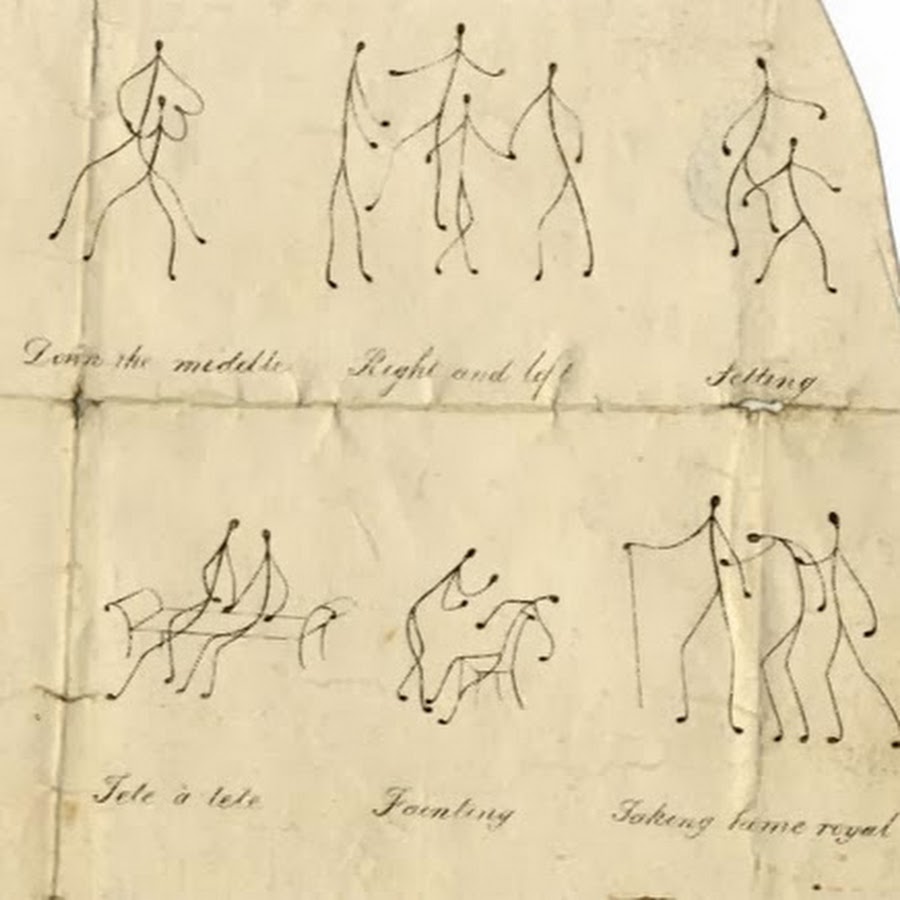 Down the middle
Right and left
Setting
Tete à tete
Fainting
Taking home royal